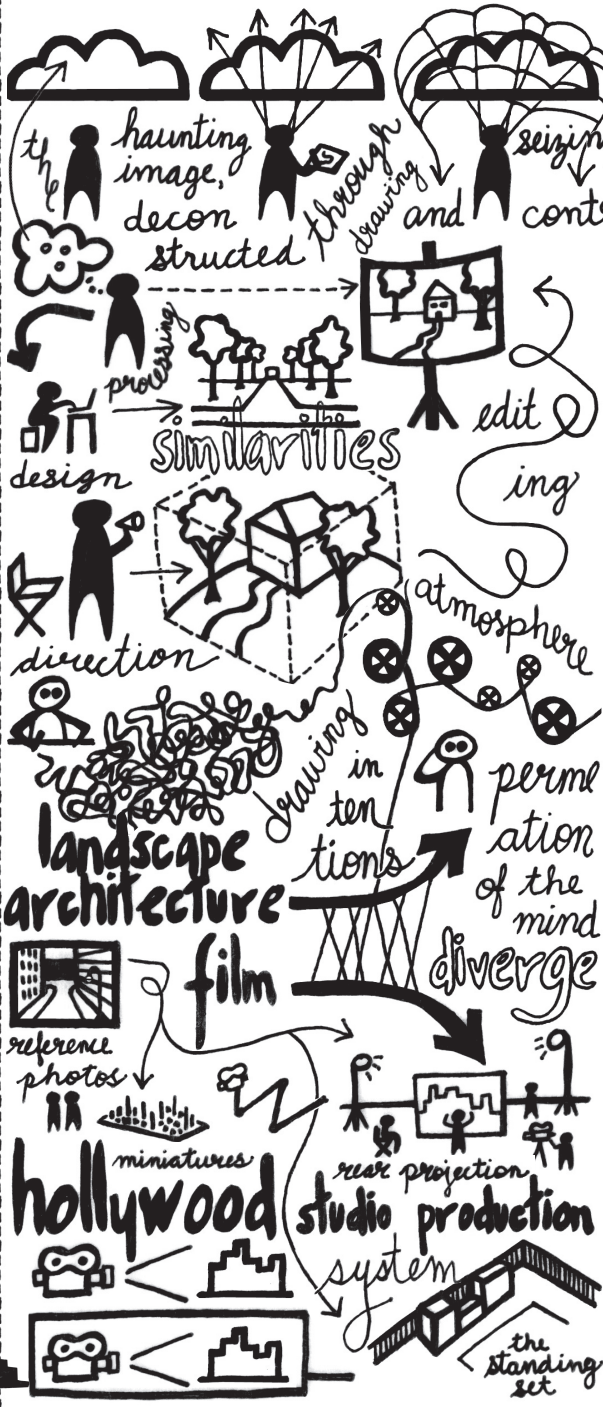 the
haunting
image,
decon
structed
through
drawing
and
seizin
contr
processing
similarities
design
edit
ing
direction
atmosphere
drawing
in
ten
tions
perme
ation
of the
mind
landscape
architecture
film
diverge
reference
photos
miniatures
rear projection
hollywood studio production
system
the
standing
set